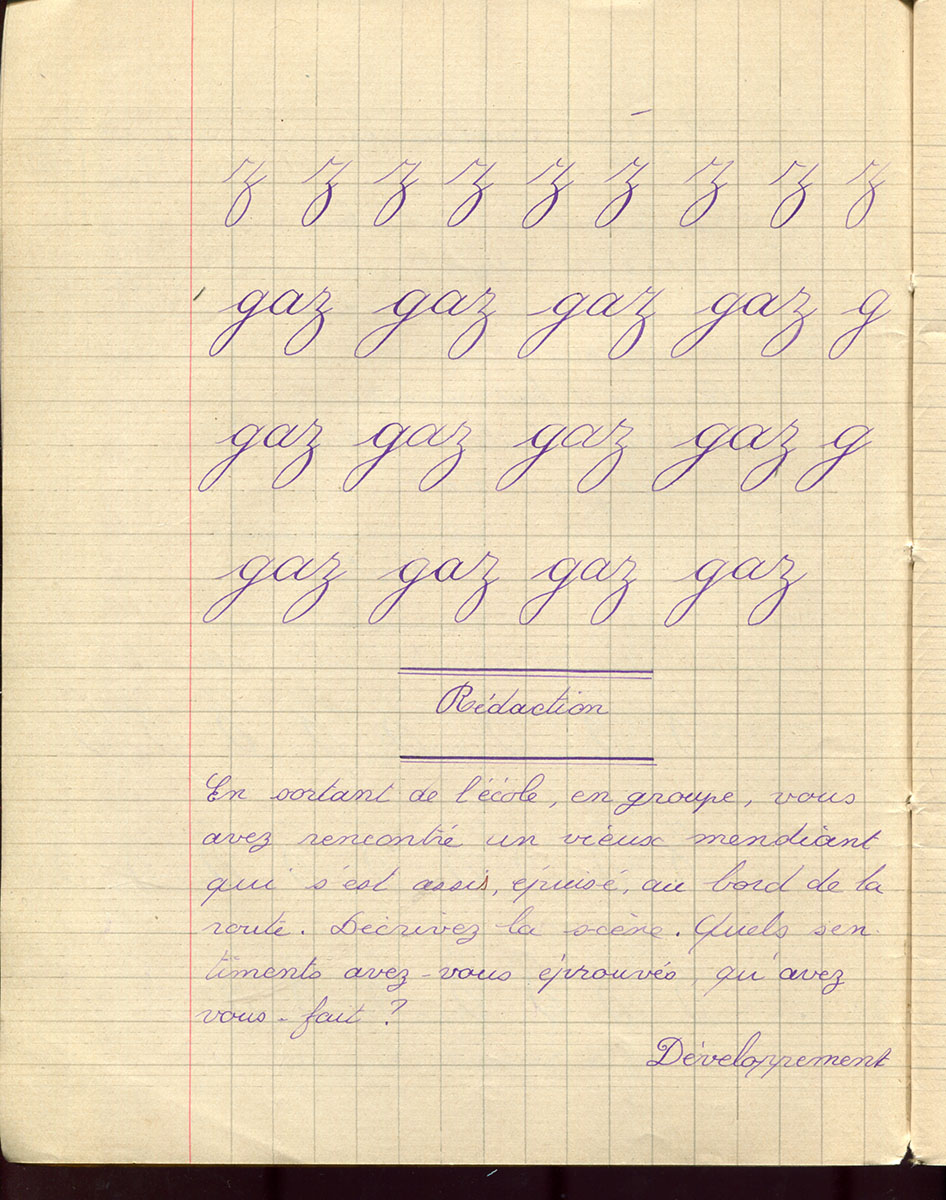 z z z z z z z z z
gaz gaz gaz gaz g
gaz gaz gaz gaz g
gaz gaz gaz gaz
Rédaction
En sortant de l'école, en groupe, vous
avez rencontré un vieux mendiant
qui s'est assis, épuisé, au bord de la
route. Décrivez la scène. Quels sen-
timents avez-vous éprouvés, qu'avez
vous-fait ?
Développement